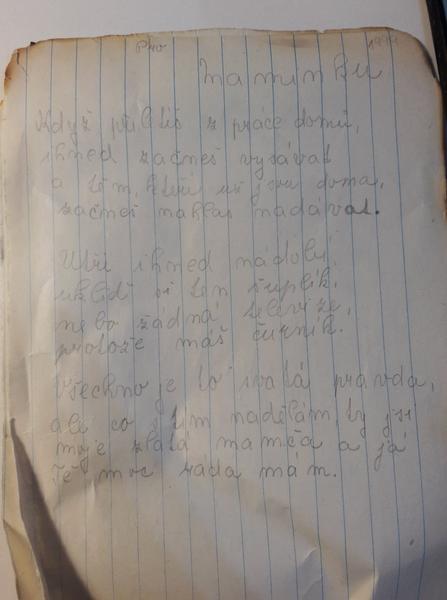 Pro
maminku
Když přiletíš z práce domů,
ihned začneš vysávat
a těm, kteří už jsou doma,
začneš nahlas nadávat.
Utři ihned nádobí,
ukliď si ten šuplík,
nebo žádná televize,
protože máš čurník.
Všechno je to svatá pravda,
ale co s tím nadělám, ty jsi
moje zlatá mamča a já
Tě moc ráda mám.